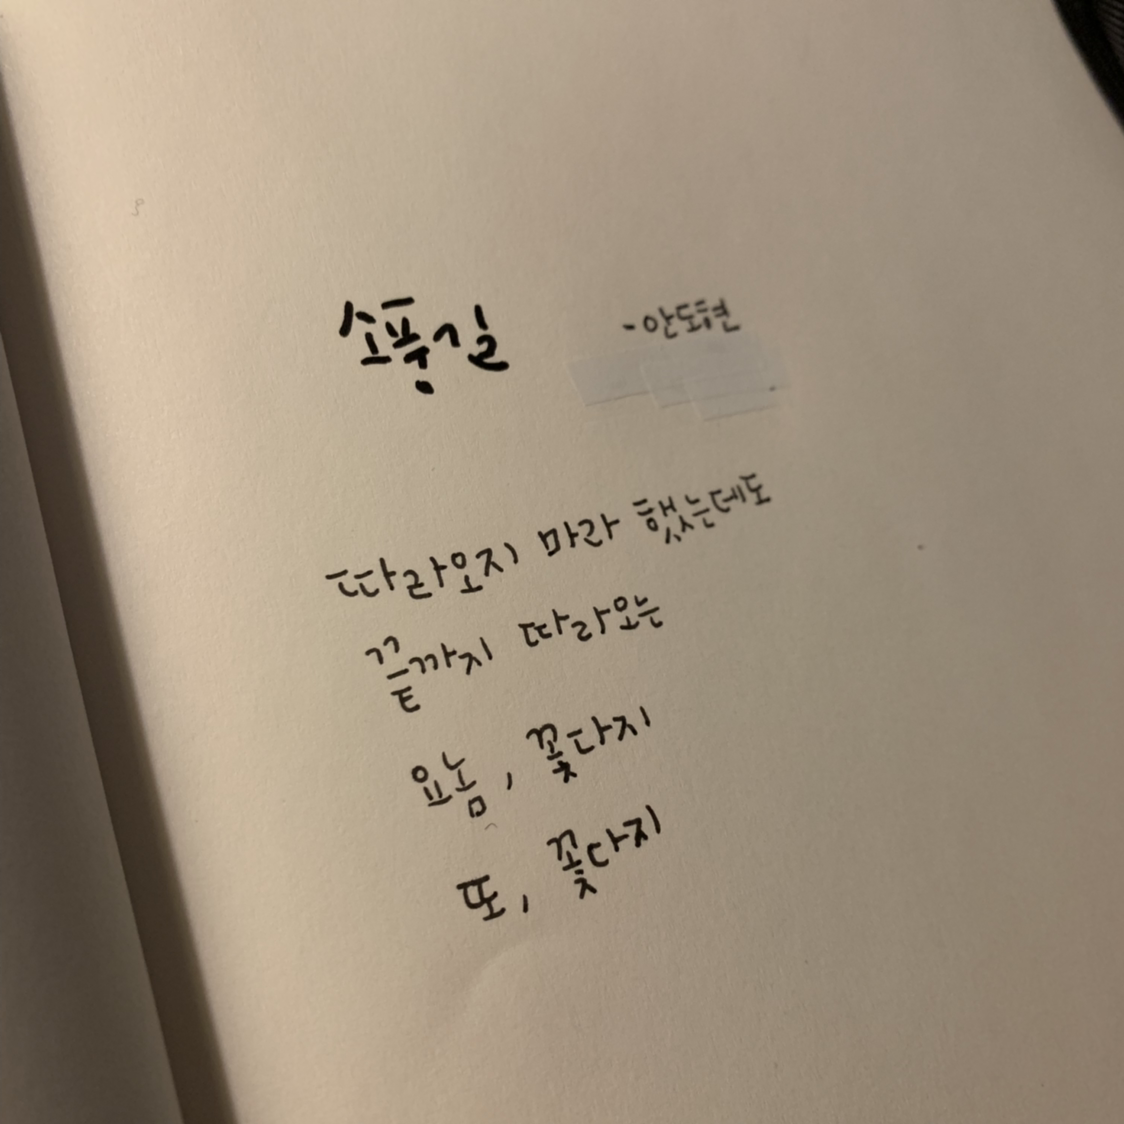 소풍길 - 안도현
따라오지 마라 했는데도
끝까지 따라오는
요놈, 꽃다지
또, 꽃다지